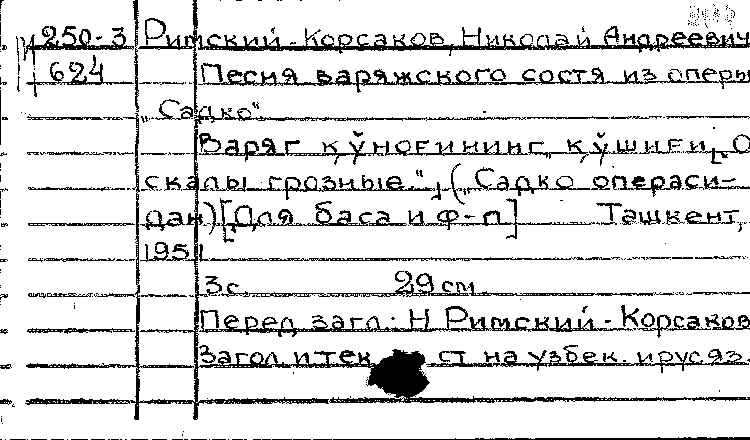 250-3 Римский-Корсаков, Николай Андреевич
624 Песня варяжского гостя из оперы
„Садко".
Варяг қўноғининг „қўшиғи„[„О
скалы грозные."], („Садко операси-
дан)[Для баса и ф-п] Ташкент,
1951
3 с. 29 см.
Перед загл.: Н Римский-Корсаков
Загол. и тек ст на узбек. и рус яз.